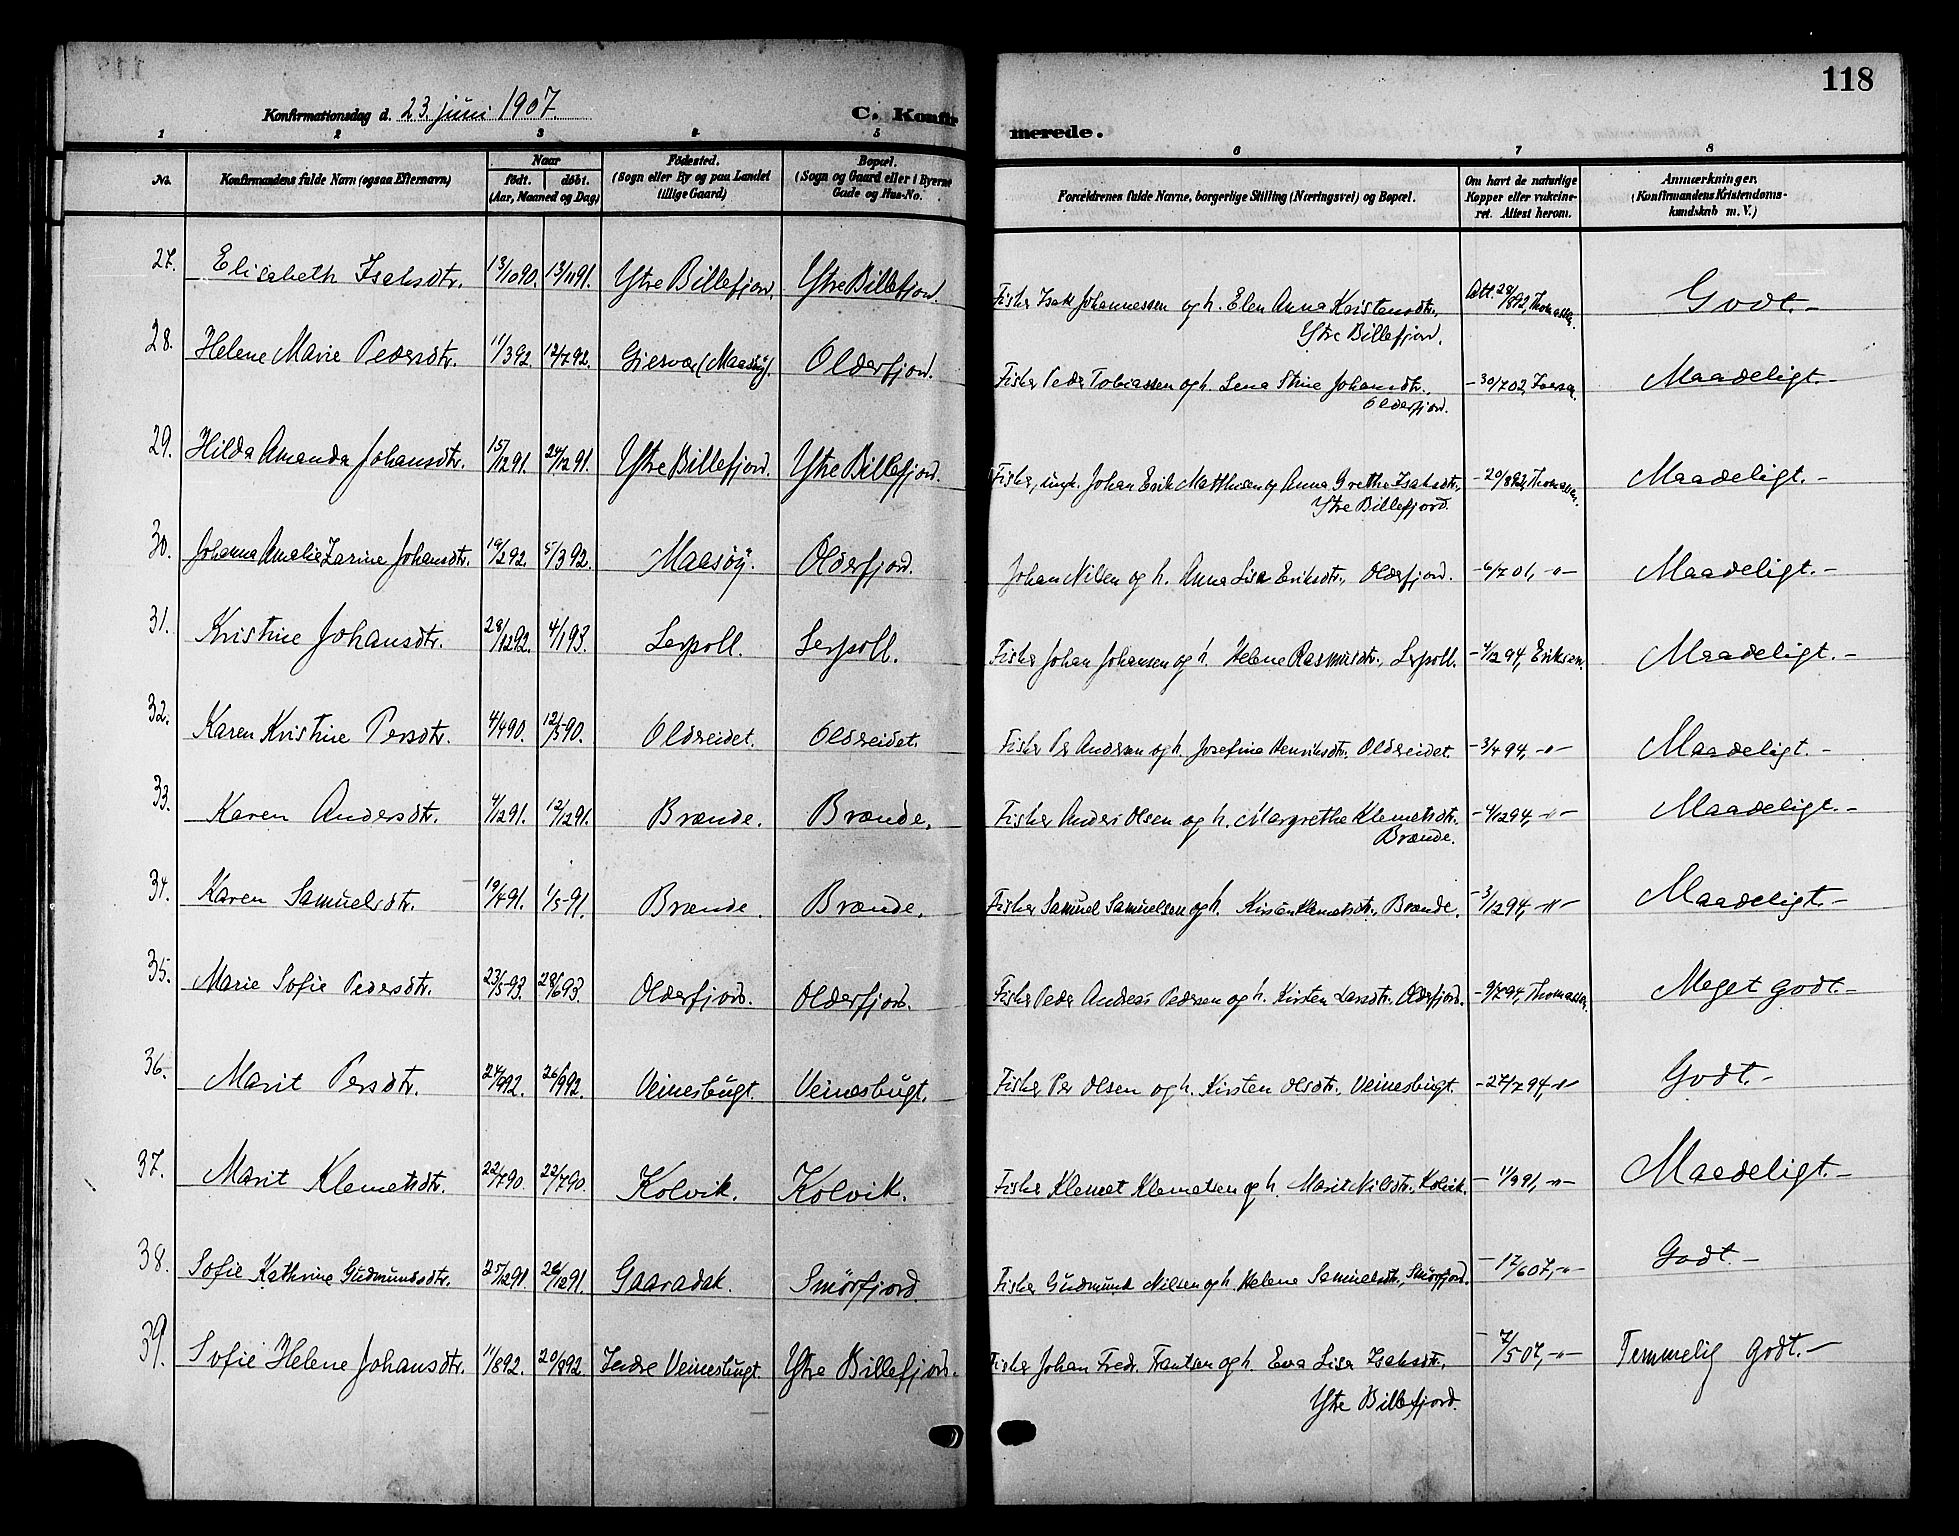 118
Konfirmationsdag d. 23. juni 1907.
C. Konfirmerede.
1 2 3 4 5 6 7 8
No. Konfirmandens fulde Navn (ogsaa Efternavn) Naar født. døbt. (Aar, Maaned og Dag) Fødested. (Sogn eller By og paa Landet tillige Gaard) Bopæl. (Sogn og Gaard eller i Byerne Gade og Hus-No. Forældrenes fulde Navne, borgerlige Stilling (Næringsvei) og Bopæl. Om havt de naturlige Kopper eller vakcineret. Attest herom. Anmærkninger. (Konfirmandens Kristendomskundskab m. V.)
27. Elisabeth Isaksdtr. 13/1090. 13/1191. Ytre Billefjord. Ytre Billefjord. Fisker Isak Johannessen og h. Elen Anna Kristensdtr., Att. 28/892, Thomassen. Godt. –
Ytre Billefjord.
28. Helene Marie Pedersdtr. 11/392. 12/792. Giesvær (Maasøy). Olderfjord. Fisker Peder Tobiassen og h. Lena Stine Johansdtr., – 30/702, Iversen. Maadeligt. –
Olderfjord.
29. Hilda Amanda Johansdtr. 15/1291. 24/1291. Ytre Billefjord. Ytre Billefjord. Fisker, ungk. Johan Erik Matthisen og Anna Grethe Isaksdtr., – 20/892, Thomassen. Maadeligt. –
Ytre Billefjord.
30. Johanna Amalie Zarine Johansdtr. 19/292. 5/392. Maasøy. Olderfjord. Johan Nilsen og h. Anna Lisa Eriksdtr., Olderfjord. – 6/701, –"– Maadeligt. –
31. Kristine Johansdtr. 28/1292. 4/193. Lerpoll. Lerpoll. Fisker Johan Johansen og h. Helene Rasmusdtr., Lerpoll. – 4/1294, Eriksen. Maadeligt. –
32. Karen Kristine Persdtr. 4/490. 12/590. Oldereidet. Oldereidet. Fisker Per Andersen og h. Josefine Henriksdtr. Oldereidet. – 3/494, –"– Maadeligt. –
33. Karen Andersdtr. 4/1291. 12/1291. Brænde. Brænde. Fisker Anders Olsen og h. Margrethe Klemetsdtr. – 4/1294, –"– Maadeligt. –
Brænde.
34. Karen Samuelsdtr. 19/491. 1/5-91. Brænde. Brænde. Fisker Samuel Samuelsen og h. Kirsten Klemetsdtr., Brænde. – 3/1294, –"– Maadeligt. –
35. Marie Sofie Pedersdtr. 23/593. 28/693. Olderfjord. Olderfjord. Fisker Peder Andreas Pedersen og h. Kirsten Larsdtr. Olderfjord. – 9/794, Thomassen. Meget godt. –
36. Marit Persdtr. 24/992. 26/992. Veinesbugt. Veinesbugt. Fisker Per Olsen og h. Kirsten Olsdtr., Veinesbugt. – 27/794, –"– Godt. –
37. Marit Klemetsdtr. 22/790. 22/790. Kolvik. Kolvik. Fisker Klemet Klemetsen og h. Marit Nilsdtr. Kolvik. – 1/991, –"– Maadeligt. –
38. Sofie Kathrine Gudmundsdtr. 25/1291. 26/1291. Gaaradak. Smørfjord. Fisker Gudmund Nilsen og h. Helene Samuelsdtr., Smørfjord. – 17/607, –"– Godt. –
39. Sofie Helene Johansdtr. 11/892. 20/892. Indre Veinesbugt. Ytre Billefjord. Fisker Johan Fredr. Frantsen og h. Eva Lisa Isaksdtr., – 7/507, –"– Temmelig godt. –
Ytre Billefjord.